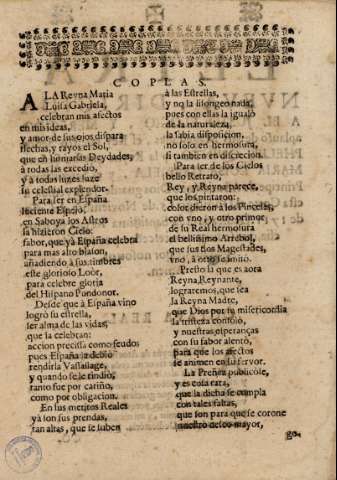 COPLAS.
A LA Reyna Maria
Luisa Gabriela,
celebran mis afectos
en mis ideas,
y amor de sus ojos dispara
flechas, y rayos el Sol,
que en humanas Deydades,
à todas las excedio,
y à todas luzes luze
su celestial explendor.
Para ser en España
luciente Espejo,
en Saboya los Astros
la hizieron Cielo:
fabor, que yà España celebra
para mas alto blason,
añadiendo à sus timbres
este glorioso Loor,
para celebre gloria
del Hispano Pundonor.
Desde que à España vino
logrò su estrella,
ser alma de las vidas,
que la celebran:
accion precisa como feudo
pues España la debiò
rendirla Vassallage,
y quando se le rindiò,
tanto fue por cariño,
como por obligacion.
En sus meritos Reales
yà son sus prendas,
tan altas, que se suben
à las Estrellas,
y no la lisongeo nada,
pues con ellas la igualò
de la naturaleza
la sabia disposicion,
no solo en hermosura,
si tambien en discrecion.
Para ser de los Cielos
bello Retrato,
Rey, y Reyna parece,
que los pintaron:
color dieron à los Pinceles,
con vno, y otro primor
de su Real hermosura
el bellissimo Arrebol,
que sus dos Magestades,
vno, à otro se imitò.
Presto si que es aora
Reyna, Reynante,
lograremos, que sea
la Reyna Madre,
que Dios por su misericordia
la tristeza consolò,
y nuestras esperanças
con su fabor alentò,
para que los afectos
se animen en su fervor.
La Preñez publicose,
y es cosa rara,
que la dicha se cumpla
con tales faltas,
que son para que se corone
nuestro deseo mayor,
go-